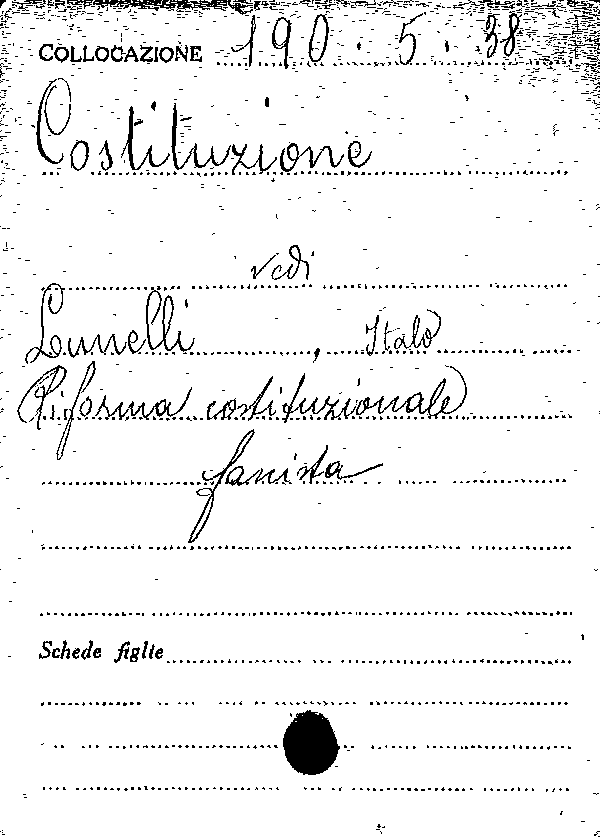 COLLOCAZIONE 190.5.38
Costituzione
vedi
Lunelli, Italo
Riforma costituzionale
fascista
Schede figlie